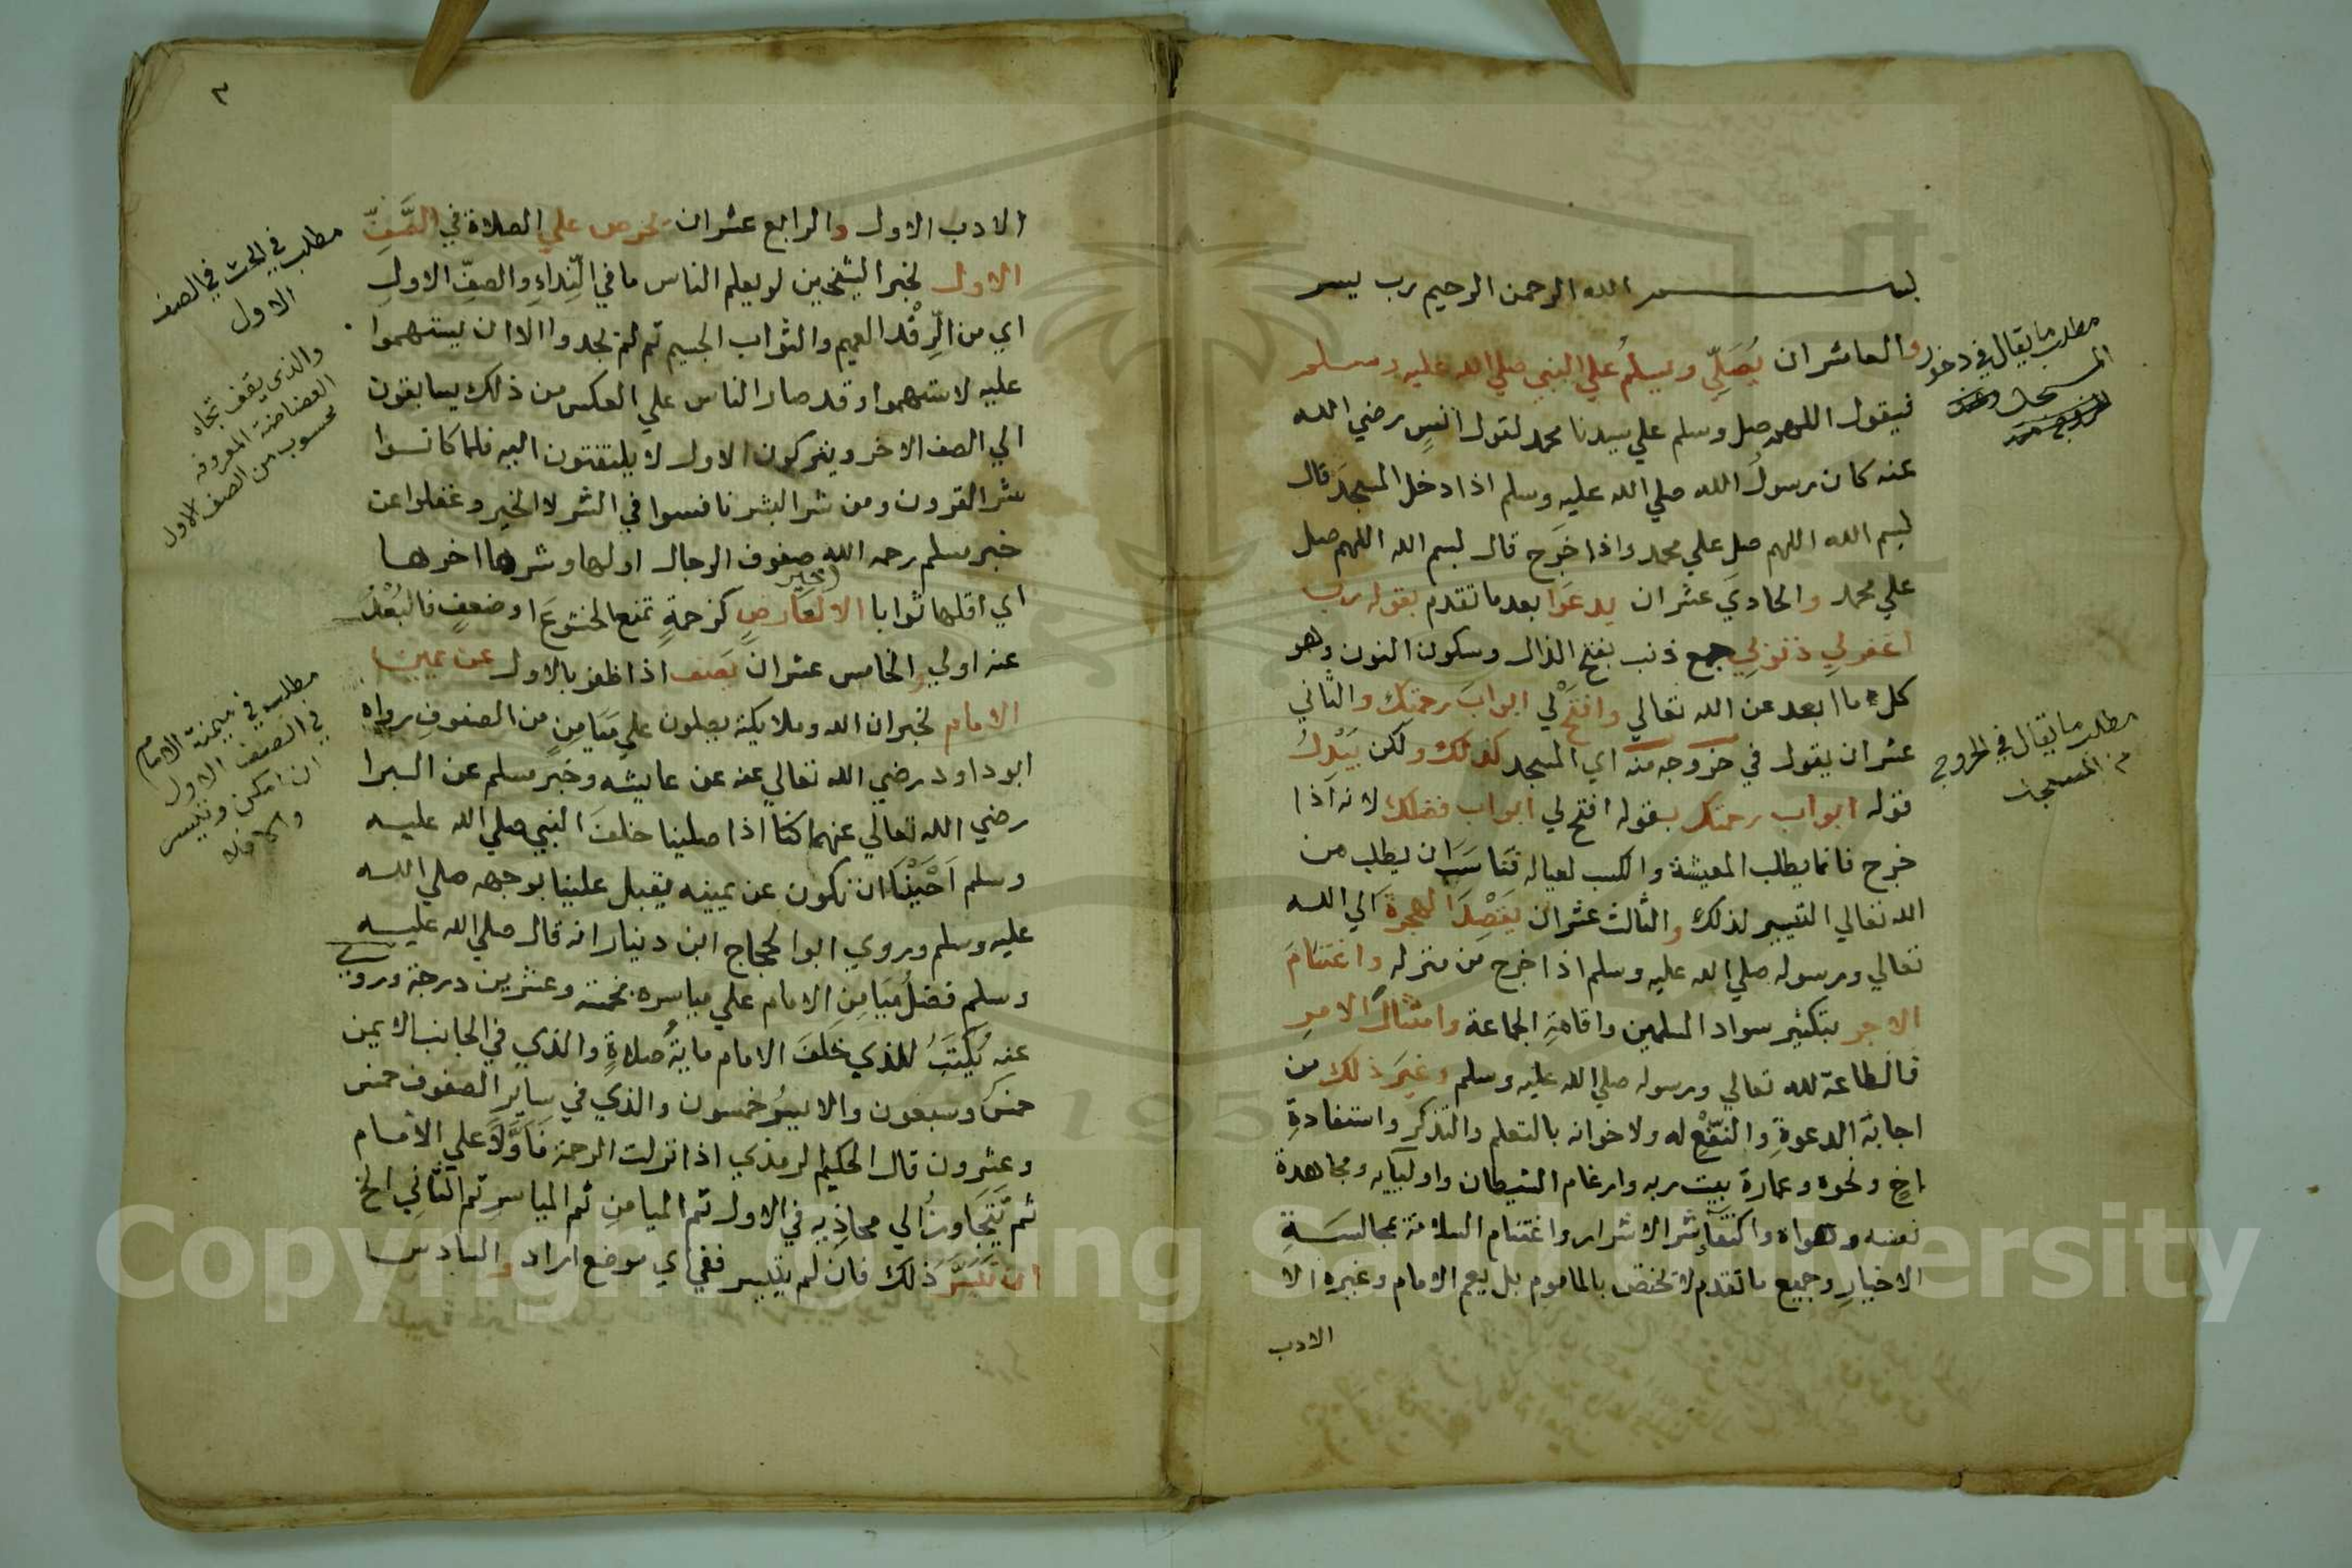 بسم الله الرحمن الرحيم رب يسر
والعاشر ان يُصَلِّي ويسلمُ علي النبي صلي الله عليه وسلم
فيقول اللهم صل وسلم علي سيدنا محمد لقول انسٍ رضي الله
عنه كان رسولُ الله صلي الله عليه وسلم اذا دخل المسجدَ قال
بسم الله اللهم صل علي محمد واذا خَرج قال بسم الله اللهم صل
علي محمد والحاديَ عشر ان يدعَوا بعد ما تقدم بقوله رب
اغفر لي ذنوبي جمع ذنب بفتح الذال وسكون النون وهو
كل ما ابعد عن الله تعالي وافتحْ لي ابوابَ رحمتك والثاني
عشر ان يقول في خروجه منه اي المسجد كذلك ولكن يُبْدِلُ
قوله ابواب رحمتك بقوله افتح لي ابواب فضلك لانه اذا
خرج فانما يطلب المعيشة والكسب لعياله فناسَبَ ان يطلب من
الله تعالي التيسير لذلك والثالث عشر ان يقصِدَ الهجرةَ الي الله
تعالي ورسوله صلي الله عليه وسلم اذا خرج من منزله واغتنامَ
الاجر بتكثير سواد المسلمين واقامةِ الجماعة وامتثالَ الامرِ
فالطاعة لله تعالي ورسوله صلي الله عليه وسلم وغيرَ ذلك من
اجابة الدعوةِ والنفْعِ له ولاخوانه بالتعلم والتذكر واستفادةِ
اخٍ ونحوه وعمارة بيت ربه وارغام الشيطان واوليآيه ومجاهدة
نفسه وهواه واكتفآء شر الاشرار واغتنام السلامة بمجالسَةِ
الاخيارِ وجميع ما تقدم لا يختص بالماموم بل يعم الامام وغيره الا
الادب
مطلب ما يقال في دخول
المسجد
مطلب ما يقال في الخروج
من المسجد
٣
الادب الاول والرابع عشر ان يحرص علي الصلاة في الصَّفِّ
الاول لخبر الشيخين لو يعلم الناس ما في النِّداءِ والصفِّ الاولِ
اي من الرِّفْد العميم والثواب الجسيم ثم لم يجدوا الا ان يستهموا
عليه لاستهموا وقد صار الناس علي العكس من ذلك يسابقون
الي الصف الاخر ويتركون الاول لا يلتفتون اليه فلما كانوا
شر القرون ومن شر البشر نافسوا في الشر لا الخير وغفلوا عن
خبر مسلم رحمه الله خير صفوف الرجال اولها وشرها اخرها
اي اقلها ثوابا الا لعَارضٍ كزحمةٍ تمنع الخشوعَ او ضعفٍ فالبُعْدُ
عنه اولي والخامس عشر ان يَصف اذا ظفر بالاول عن يمين
الامام لخبر ان الله وملايكته يصلون علي مَيَامِنِ من الصفوفِ رواه
ابو داود رضي الله تعالي عنه عن عايشه وخبَر مسلم عن البرا
رضي الله تعالي عنهما كنا اذا صلينا خلفَ النبي صلي الله عليه
وسلم اَحْبَبْنَا ان نكون عن يمينه يقبل علينا بوجهه صلي الله
عليه وسلم وروي ابو الحجاج ابن دنيار انه قال صلي الله عليه
وسلم فضلُ مَيَامِنِ الامام علي مياسره بخمسة وعشرين درجة وروي
عنه يُكتَبُ للذي خلفَ الامام مايةُ صلاةٍ والذي في الجانب الايمن
خمسٌ وسبعون والايسرُ خمسون والذي في سايرِ الصفوف خمس
وعشرون قال الحكيم الرمذي اذا نزلت الرحمة فَأوَّلًا علي الامام
ثم يَتَجَاوزُ الي محاذِيه في الاول ثم الميامنِ ثم المياسرِ ثم الثاني الخ
ان تَيَسَّرَ ذلك فان لم يتيسر ففي اي موضع اراد والسادس
مطلب في الحث في الصف
الاول
والذي يقف تجاه
المعروفه
محسوب من الصف الاول
مطلب في ميمنة الامام
في الصف الاول
ان امكن وتيسر
والا فلا
Copyright © King Saud University
195